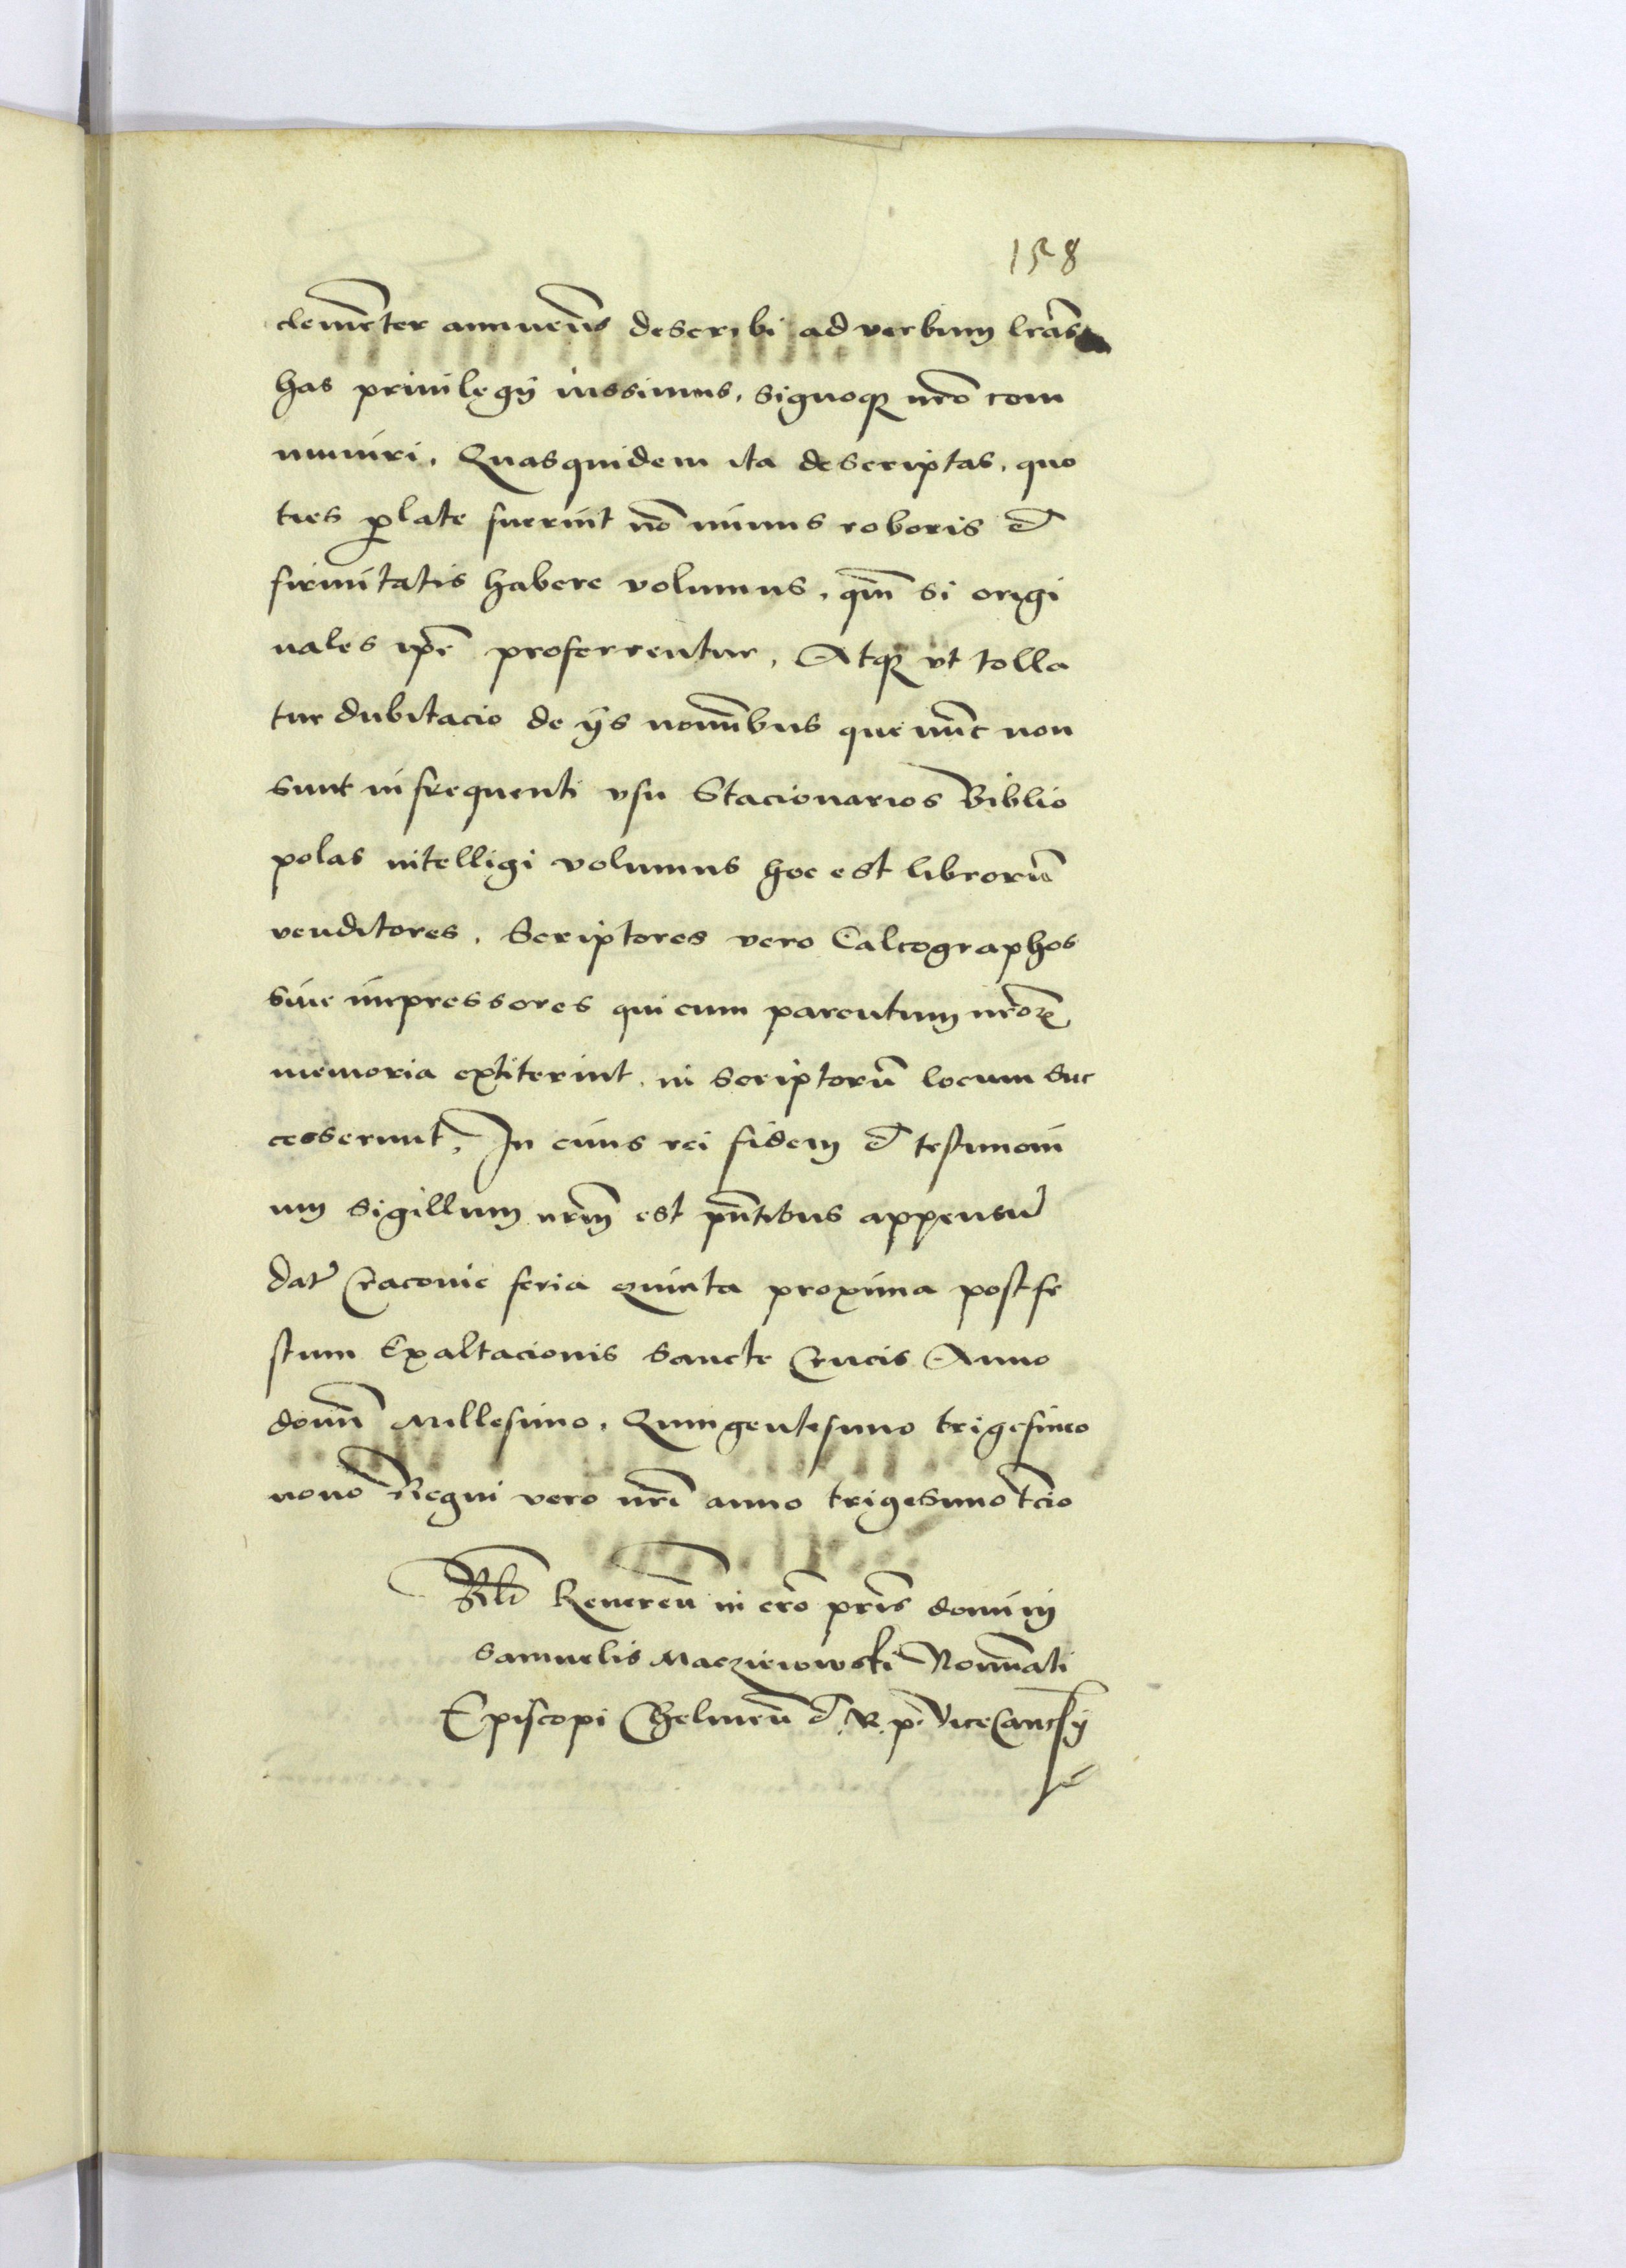 158
clemēter annuen̄s describi ad verbum lr̄as
has priuilegÿ iussimus, signoq̧ nr̄o com
muniri. Quasquidem ita descriptas, quo
ties ꝓlate fuerint nō minus roboris et
firmitatis habere volumus, qm̄ si origi
nales ip̄e proferrentur, Atq̧ vt tolla
tur dubitacio de ÿs nomīibus que nūc non
sunt in frequenti vsu Stacionarios Biblio
polas intelligi volumus hoc est librorū
venditores, Scriptores vero Calcographos
siue impressores qui cum parentum nr̄oꝝ
memoria extiterint, in scriptorū locum suc
cesserunt, In cuius rei fidem et testimoni
um sigillum nr̄m est pn̄tibus appensu̅
dat̄ Cracouie feria quinta proxima post fe
stum Exaltacionis Sancte Crucis Anno
domī Millesimo, Quingentesimo trigesimo
nono Regni vero nr̄i anno trigesimo tc̄io
Rl̄o Reueren̄ in cr̄o pr̄is domini
Samuelis Macziewowski Nomīati
Episcopi Chelmen̄ et R. p. ViceCanc̄ÿ